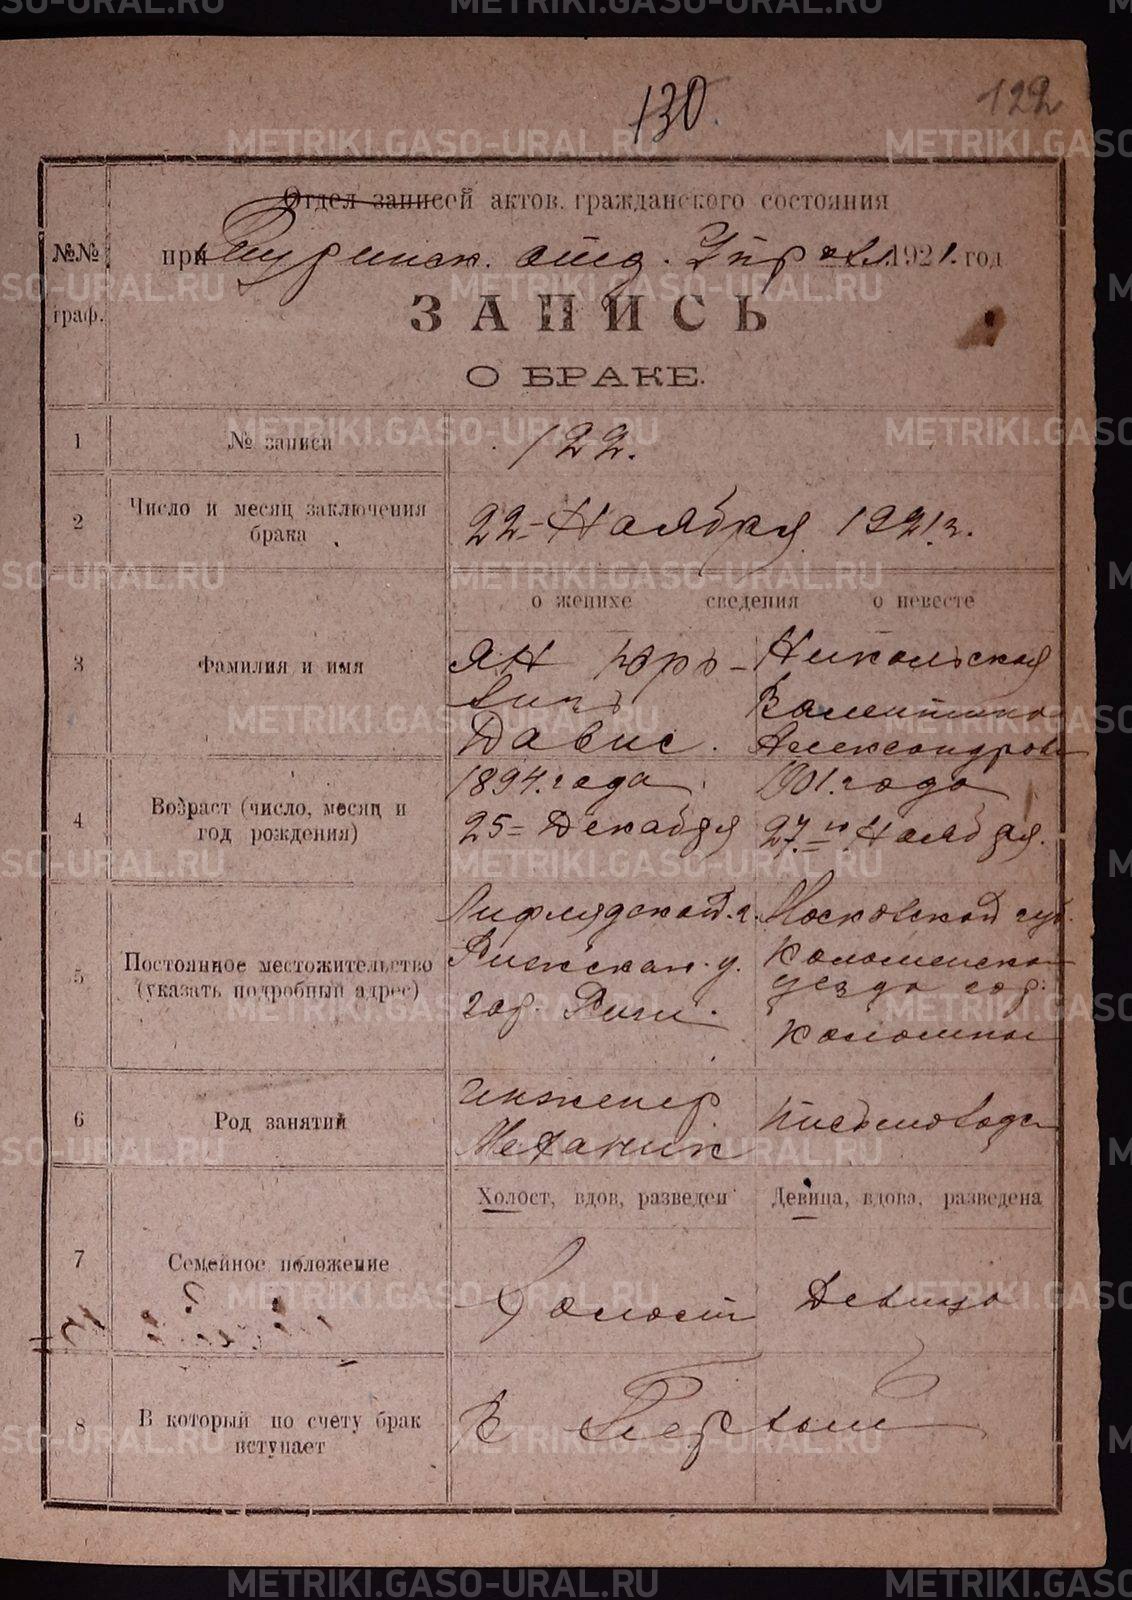 130.
122
Отдел записей актов гражданского состояния
№№
при Туринск. отд. Управл. 1921. год
граф.
ЗАПИСЬ
О БРАКЕ.
1
№ записи
122.
2
Число и месяц заключения
брака
22 - Ноября 1921 г.
о женихе
сведения
о невесте
3
Фамилия и имя
Ян Юрь-
Никольская
Валентина
Давис.
Александров
4
Возраст (число, месяц и
год рождения)
1894. года
1901. года
25 = Декабря
27.го Ноября.
5
Постоянное местожительство
(указать подробный адрес)
Лифлядской г.
Московской губ.
Рижскаи. у.
Коломенско
уезда гор.
гор. Риги.
Коломны
6
Род занятий
Инженер
Механик
Письмовод
Холост, вдов, разведен
Девица, вдова, разведена
7
Семейное положение
Холост
Девица
8
В который по счету брак
вступает
В Первый
METRIKI.GASO-URAL.RU